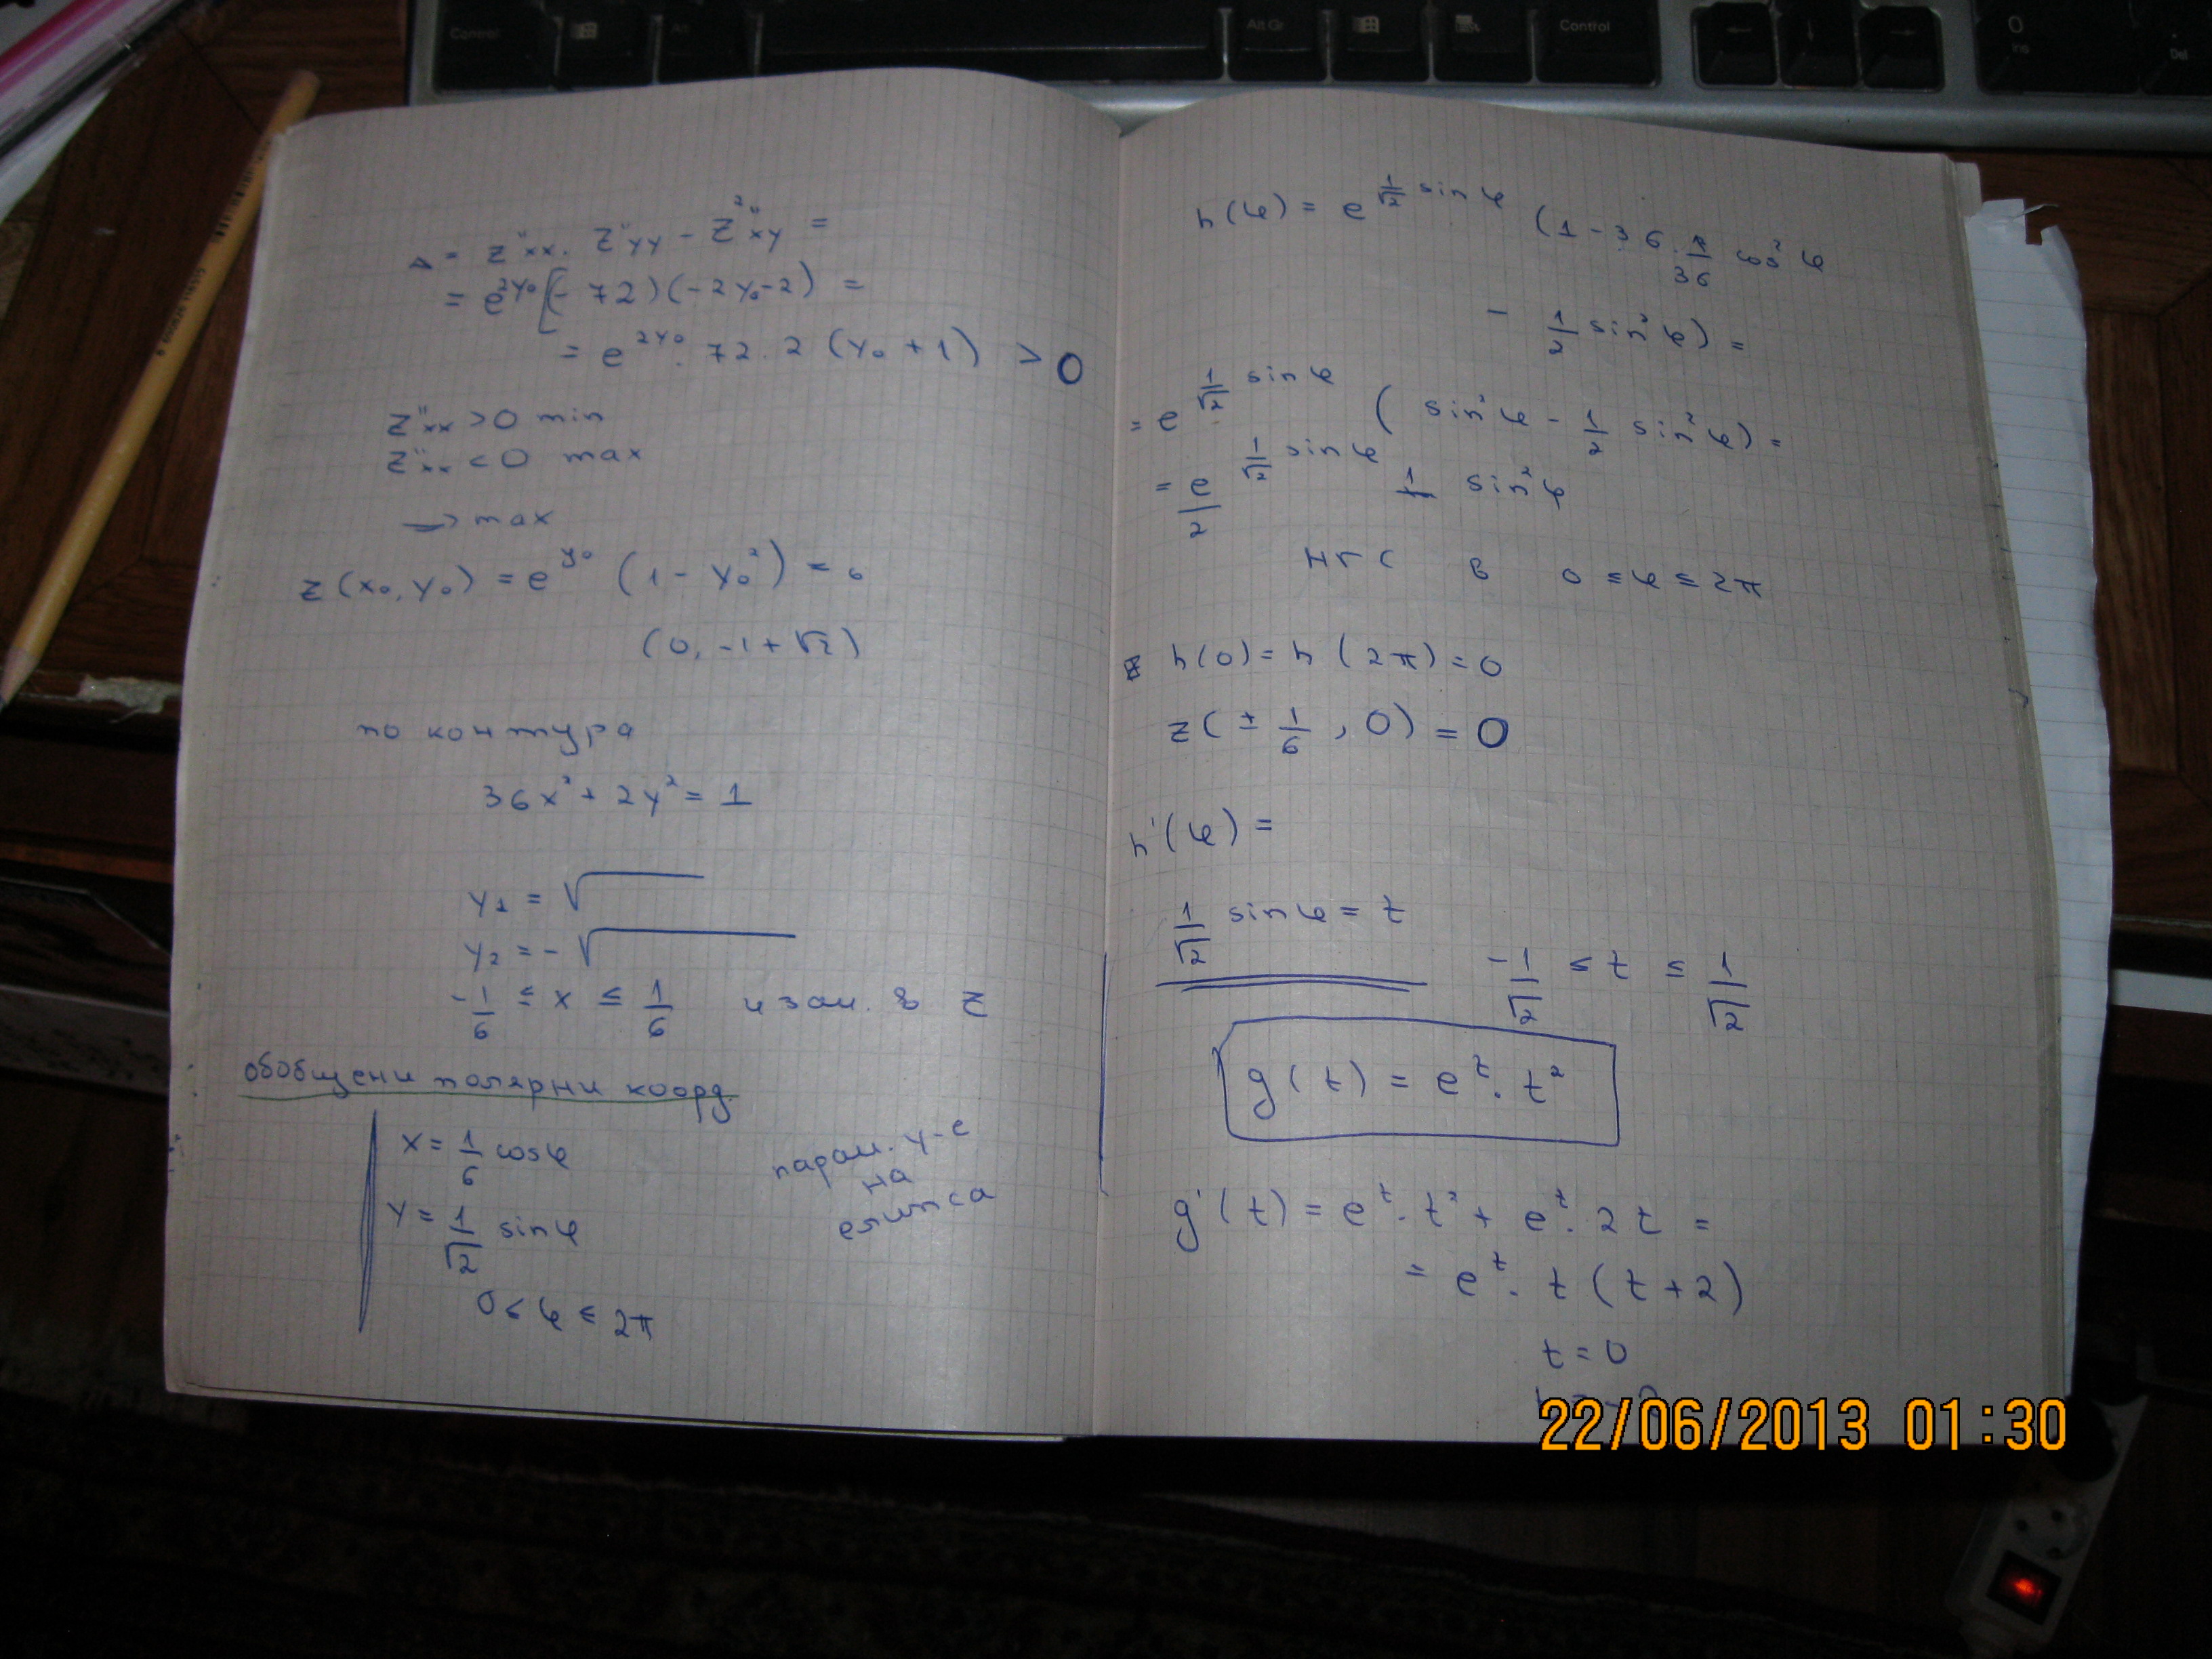 Δ = z''xx . z''yy - z''²xy =
= e^{2y₀} [(-72)(-2y₀-2) =
= e^{2y₀} . 72 . 2 (y₀ + 1) > 0
z''xx > 0 min
z''xx < 0 max
→ max
z(x₀, y₀) = e^{y₀} (1 - y₀²) =
(0, -1+√2)
по контура
36x² + 2y² = 1
y₁ = √
y₂ = -√
-1/6 ≤ x ≤ 1/6 и зам. в z
обобщени полярни коорд.
x = 1/6 cosφ
y = 1/√2 sinφ
0 ≤ φ ≤ 2π
парам. у-е
на
елипса
h(φ) = e^{1/√2 sinφ} (1 - 36 . 1/36 cos²φ
- 1/2 sin²φ) =
= e^{1/√2 sinφ} (sin²φ - 1/2 sin²φ) =
= e^{1/√2 sinφ}/2 sin²φ
НГС в 0 ≤ φ ≤ 2π
h(0) = h(2π) = 0
z(± 1/6, 0) = 0
h'(φ) =
1/√2 sinφ = t
-1/√2 ≤ t ≤ 1/√2
g(t) = e^t . t²
g'(t) = e^t . t² + e^t . 2t =
= e^t . t(t+2)
t = 0
22/06/2013 01:30
Control
Alt
Alt Gr
Control
0
Ins
Del